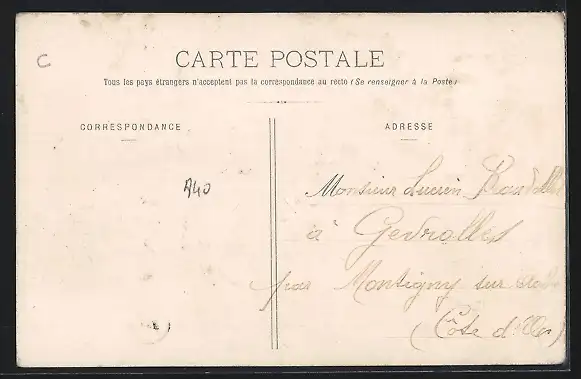 C
CARTE POSTALE
Tous les pays étrangers n'acceptent pas la correspondance au recto (Se renseigner à la Poste)
CORRESPONDANCE
ADRESSE
A40
Monsieur Lucien
à Gevrolles
par Montigny sur Aube
(Côte d'Or)